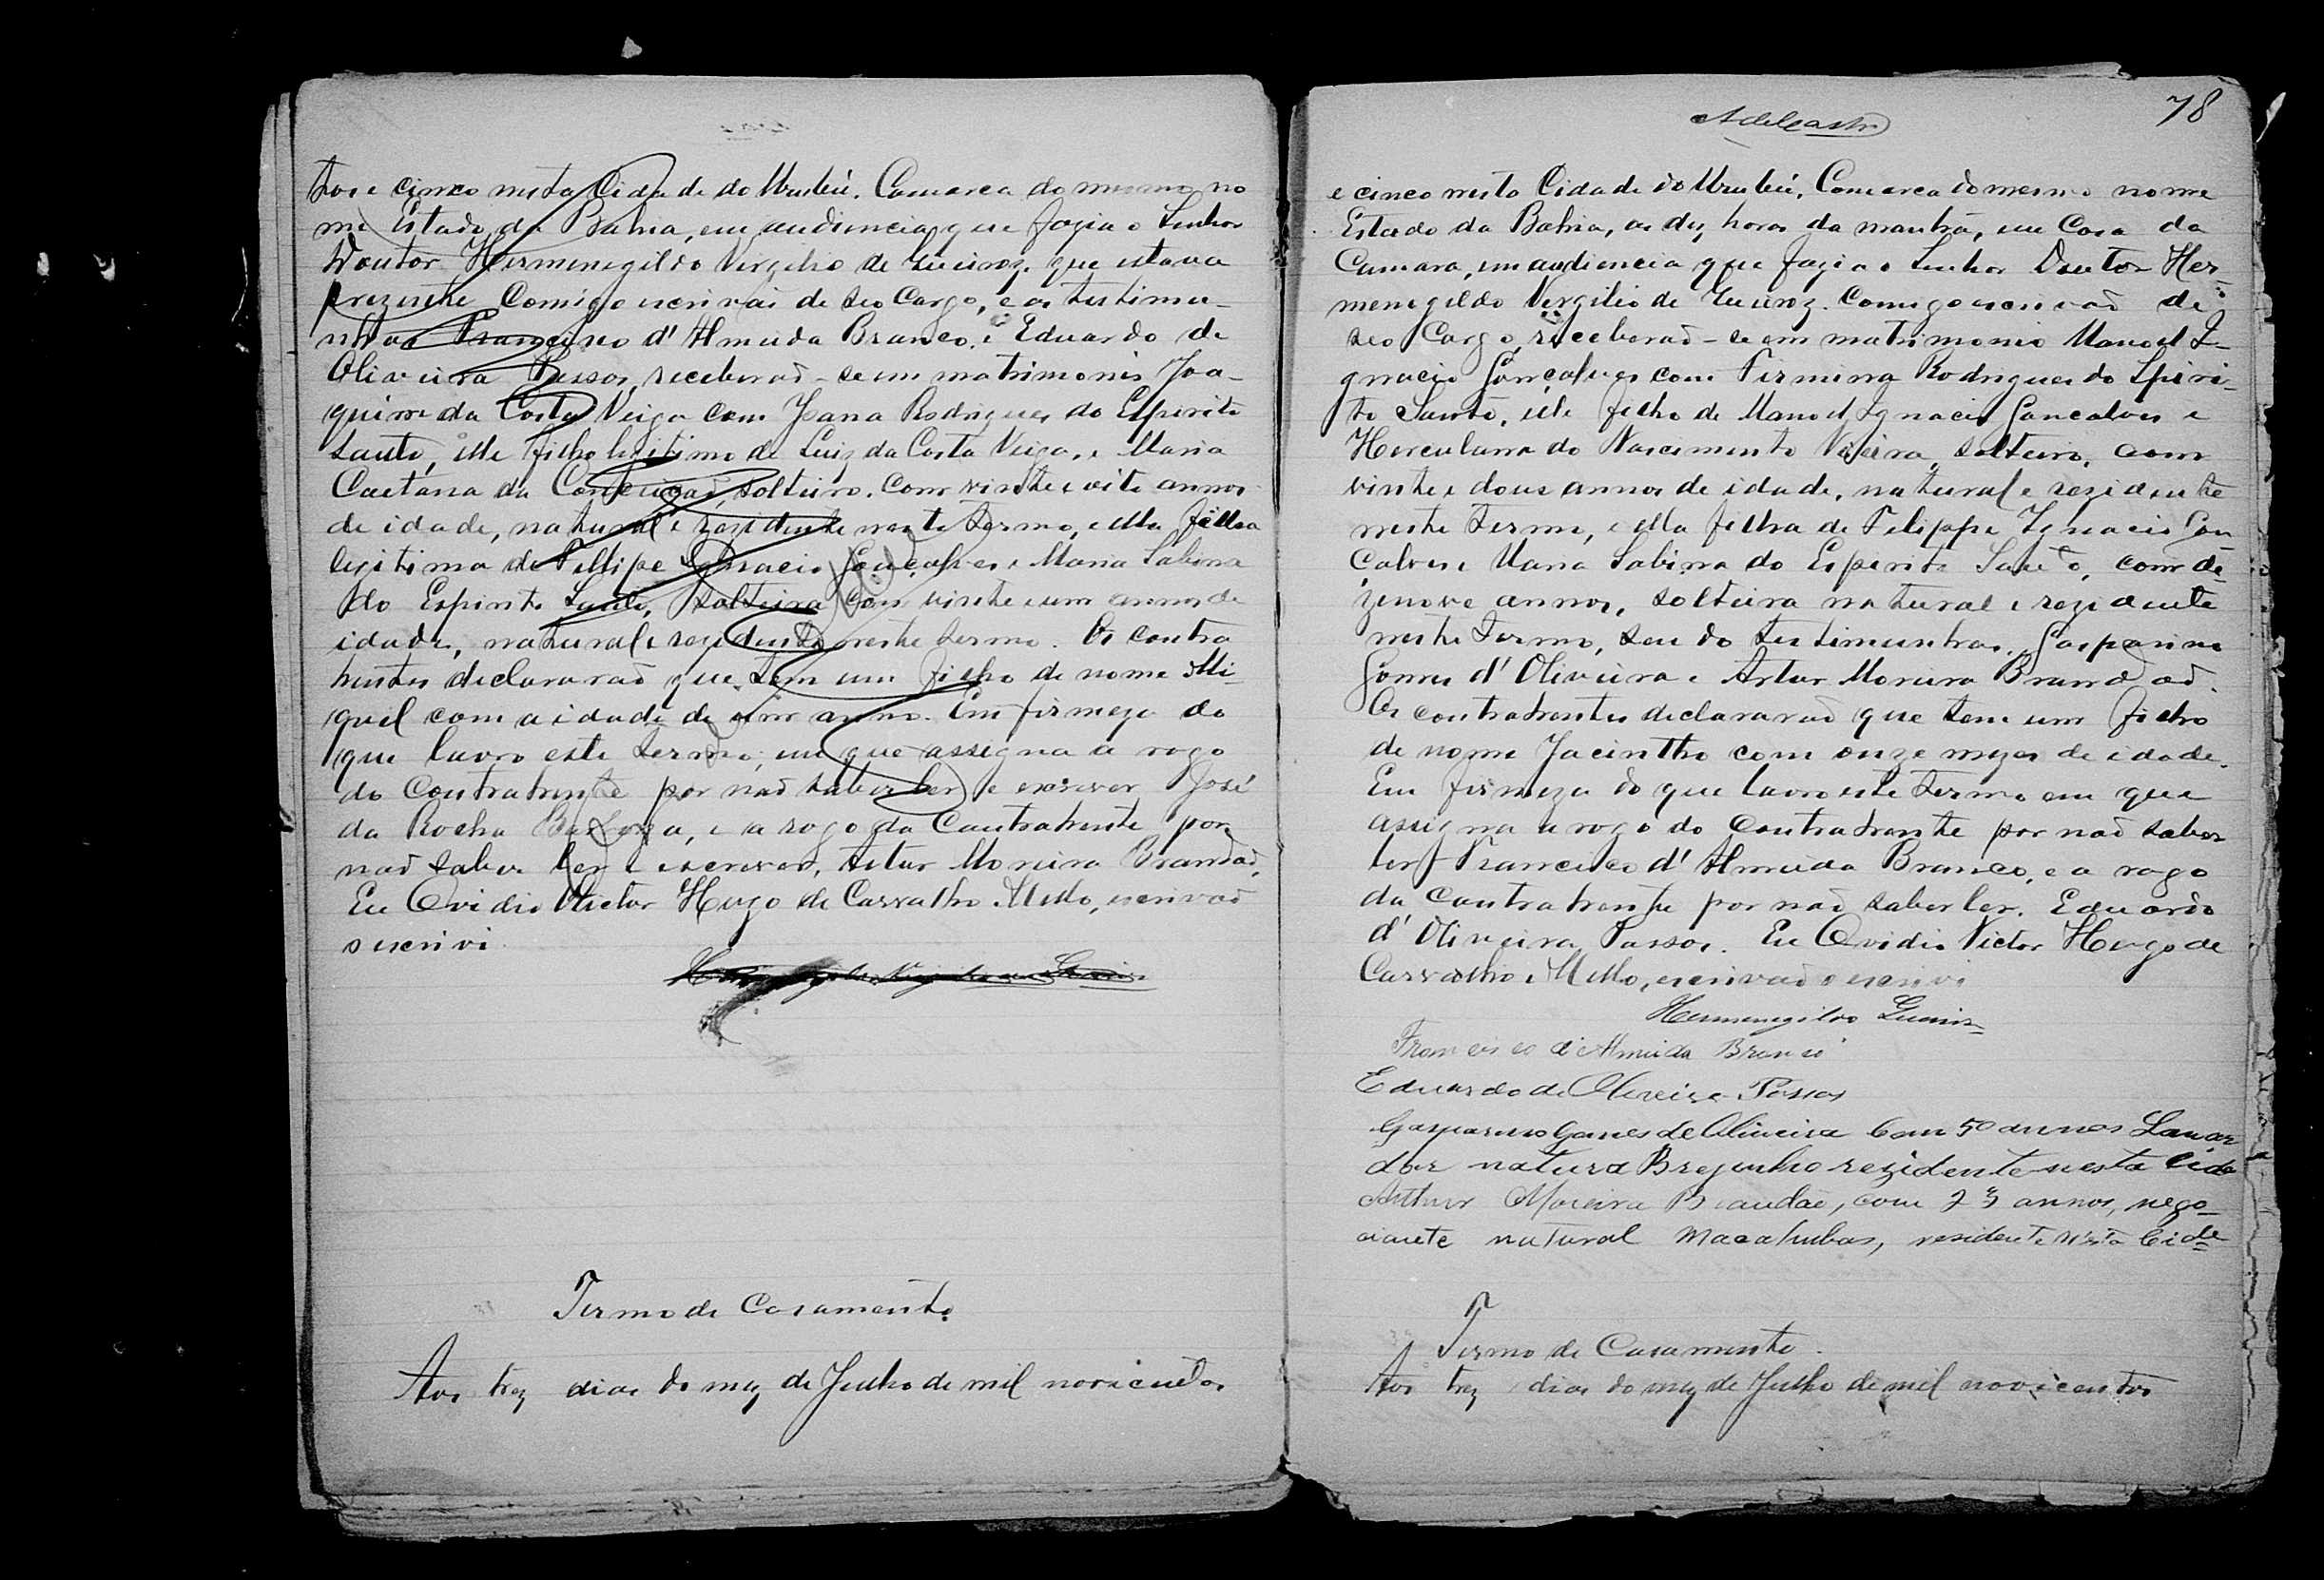 tos e cinco nesta Cidade do Urubú. Comarca do mesmo no
me Estado da Bahia, em audiencia que fazia o Senhor
Doutor Hermenegildo Vergilio de Queiroz, que estava
prezente Comigo escrivaõ de seo Cargo, e as testimu-
nhas Francisco d'Almeida Branco, e Eduardo de
Oliveira Passos, receberaõ-se em matrimonio Joa-
quim da Costa Veiga com Joana Rodrigues do Espirito
Santo, elle filho legitimo de Luiz da Costa Veiga, e Maria
Caetana da Conceiçaõ, solteiro, com vinte e oito annos
de idade, natural e rezidente neste termo, e ella filha
legitima de Fellipe Ignacio Gonçalves e Maria Sabina
do Espirito Santo, solteira com vinte e um annos de
idade, natural e rezidente neste termo. Os contra
hentes declararaõ que tem um filho de nome Mi-
guel com a idade de um anno. Em firmeza do
que lavro este termo, em que assigna a rogo
do Contrahente por naõ saber ler e escrever José
da Rocha Barboza, e a rogo da Contrahente por
naõ saber ler e escrever, Artur Moreira Brandaõ,
Eu Ovidio Victor Hugo de Carvalho e Mello, escrivaõ
o escrivi
Termo de Casamento.
Aos trez dias do mez de Julho de mil novicentos
78
e cinco nesta Cidade do Urubú, Comarca do mesmo nome
Estado da Bahia, as dez horas da manhã, em Casa da
Camara, em audiencia que fazia o Senhor Doutor Her-
menegildo Vergilio de Queiroz. Comigo escrivaõ de
seo Cargo, receberaõ-se em matrimonio Manoel I-
gnacio Gonçalves com Firmina Rodrigues do Spiri-
to Santo, elle filho de Manoel Ignacio Goncalves e
Herculana do Nascimento Vieira, solteiro, com
vinte e dous annos de idade, natural e rezidente
neste termo, e ella filha de Felippe Ignacio Gon-
çalves e Maria Sabina do Espirito Santo, com de-
zenove annos, solteira natural e rezidente
neste termo, sendo testimunhas, Gasparino
Gomes d'Oliveira e Artur Moreira Brandaõ.
Os contrahentes declararaõ que tem um filho
de nome Jacintho com onze mezes de idade.
Em firmeza do que lavro este termo em que
assigna a rogo do Contrahente por naõ saber
ler Francisco d'Almeida Branco, e a rogo
da Contrahente por naõ saber ler. Eduardo
d'Oliveira Passos. Eu Ovidio Victor Hugo de
Carvalho e Mello, escrivaõ o escrivi
Hermenegildo Queiroz
Francisco d'Almeida Branco
Eduardo de Oliveira Passos
Gasparino Gomes de Oliveira com 50 annos Lavra
dor natural Brejinho rezidente nesta Cide
Arthur Moreira Brandão, com 23 annos, nego-
ciante natural Macahubas, residente nesta Cide
Termo de Casamento.
Aos trez dias do mez de Julho de mil novicentos